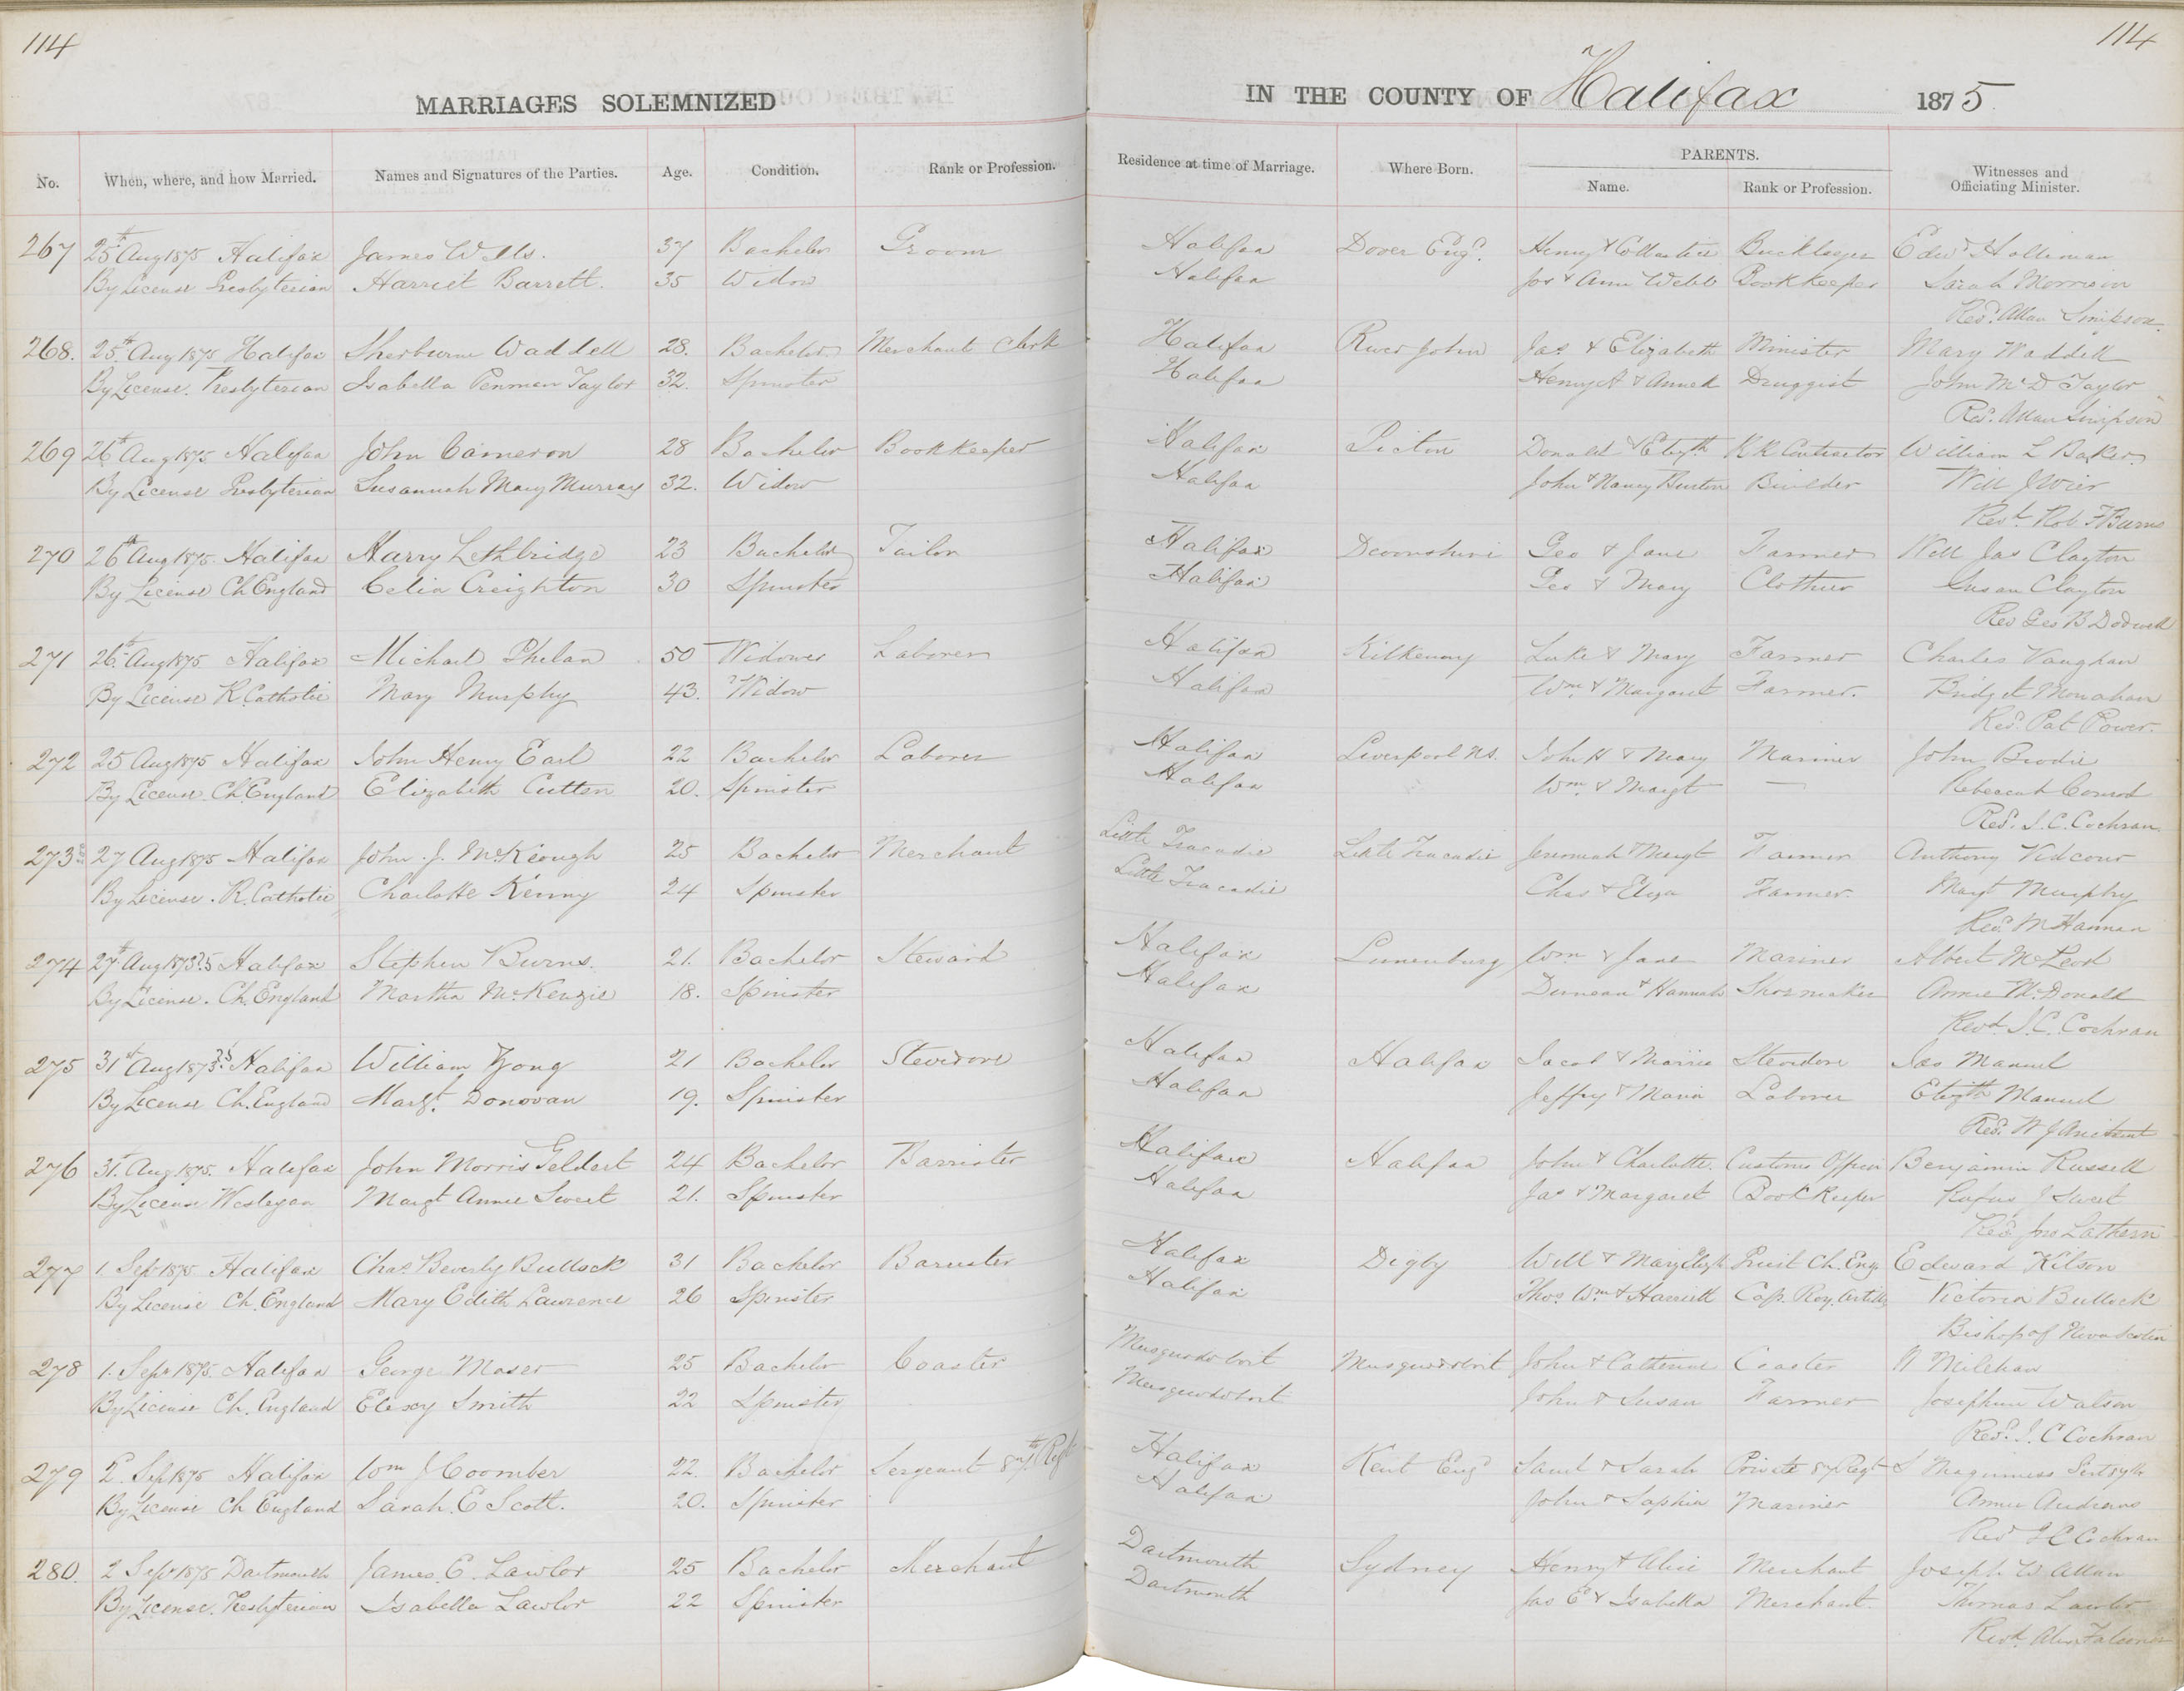 114
114
MARRIAGES SOLEMNIZED
IN THE COUNTY OF Halifax 1875
No. When, where, and how Married. Names and Signatures of the Parties. Age. Condition. Rank or Profession. Residence at time of Marriage. Where Born. PARENTS. Name. Rank or Profession. Witnesses and Officiating Minister.
267 25th Aug 1875 Halifax James Wells. 37 Bachelor Groom Halifax Dover Engd. Henry & Bricklayer Edwd Holliman
By License Presbyterian Harriet Barrett. 35 Widow Halifax Jos & Ann Webb Bookkeeper Sarah Morrison
Revd. Allan Simpson.
268. 25th Aug 1875 Halifax Sherburne Waddell 28. Bachelor Merchants Clerk Halifax River John Jas. & Elizabeth Minister Mary Waddell
By License. Presbyterian Isabella Penman Taylor 32. Spinster Halifax Henry A & Annie Druggist John McD Taylor
Revd. Allan Simpson
269 26th Aug 1875 Halifax John Cameron 28 Bachelor Bookkeeper Halifax Pictou Donald & Elizth RR Contractor William L Baker
By License Presbyterian Susannah Mary Murray 32. Widow Halifax John & Nancy Builder Will J Weir
Revd. Rob F Burns
270 26th Aug 1875. Halifax Harry Lethbridge 23 Bachelor Tailor Halifax Devonshire Geo & Jane Farmer Will Jas Clayton
By License Ch England Celia Creighton 30 Spinster Halifax Geo & Mary Clothier Susan Clayton
Rev Geo B Dodwell
271 26th Aug 1875 Halifax Michael Phelan 50 Widower Laborer Halifax Kilkenny Luke & Mary Farmer Charles Vaughan
By License R. Catholic Mary Murphy 43. Widow Halifax Wm & Margaret Farmer. Bridget Monahan
Revd. Pat Power.
272 25 Aug 1875 Halifax John Henry Earl 22 Bachelor Laborer Halifax Liverpool NS. John H & Mary Mariner John Brodie
By License. Ch. England Elizabeth Cutten 20. Spinster Halifax Wm. & Margt — Rebeccah Conrod
Revd. J. C. Cochran
273 27 Aug 1875 Halifax John. J. McKeough 25 Bachelor Merchant Little Tracadie Little Tracadie Jeremiah & Margt Farmer Anthony
By License. R. Catholic Charlotte Kenny 24 Spinster Little Tracadie Chas & Eliza Farmer. Margt Murphy
Revd. M Hannan
274 27th Aug 1873?5 Halifax Stephen Burns. 21. Bachelor Steward Halifax Lunenburg Wm & Jane Mariner Albert McLeod
By License. Ch. England Martha McKenzie 18. Spinster Halifax Duncan & Hannah Shoemaker Annie McDonald
Revd J. C. Cochran
275 31st Aug 1873?5 Halifax William Yong 21 Bachelor Stevedore Halifax Halifax Jacob & Maria Stevedore Jas Manuel
By License Ch. England Margt. Donovan 19. Spinster Halifax Jeffry & Maria Laborer Elizth Manuel
Revd. W J Ancient
276 31st. Aug 1875. Halifax John Morris Geldert 24 Bachelor Barrister Halifax Halifax John & Charlotte. Customs Officer Benjamin Russell
By License Wesleyan Margt Annie Sweet 21. Spinster Halifax Jas & Margaret Book Keeper Rufus J Sweet
Revd. Jno Lathern
277 1. Sep 1875 Halifax Chas Beverly Bullock 31 Bachelor Barrister Halifax Digby Will & Mary Elizth Priest Ch. Eng Edward Kilson
By License Ch. England Mary Edith Lawrence 26 Spinster Halifax Thos. Wm & Harriett Cap. Roy. Artilly Victoria Bullock
Bishop of Nova Scotia
278 1. Sept 1875. Halifax George Maser 25 Bachelor Coaster Musquodoboit Musquodoboit John & Catherine Coaster
By License Ch. England Elexy Smith 22 Spinster Musquodoboit John & Susan Farmer Josephine Watson
Revd. J. C Cochran
279 2. Sep 1875 Halifax Wm J Coomber 22. Bachelor Sergeant 87th Regt Halifax Kent Engd Saml & Sarah Private 87 Regt S Maguinness Sert 87th
By License Ch England Sarah. E Scott. 20. Spinster Halifax John & Sophia Mariner Annie Andrews
Revd J C Cochran
280. 2 Sept 1875 Dartmouth James. E. Lawlor 25 Bachelor Merchant Dartmouth Sydney Henry & Alice Merchant Joseph W Allan
By License. Presbyterian Isabella Lawlor 22 Spinster Dartmouth Jas E & Isabella Merchant. Thomas Lawlor
Revd. Alex Falconer